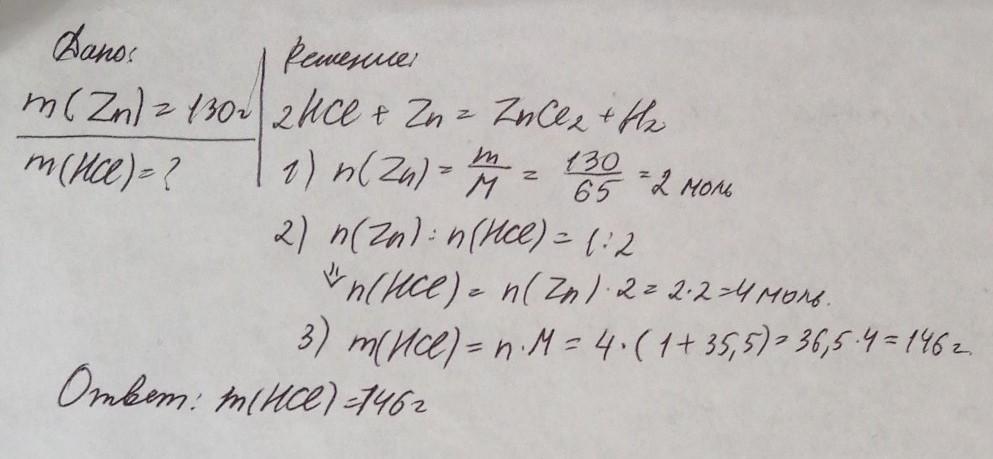 Дано:
m(Zn) = 130г
m(HCl) = ?
Решение:
2HCl + Zn = ZnCl₂ + H₂
1) n(Zn) = m/M = 130/65 = 2 моль
2) n(Zn) : n(HCl) = 1:2
⇓ n(HCl) = n(Zn) · 2 = 2·2 = 4 моль.
3) m(HCl) = n·M = 4·(1+35,5) = 36,5·4 = 146 г.
Ответ: m(HCl) = 146г